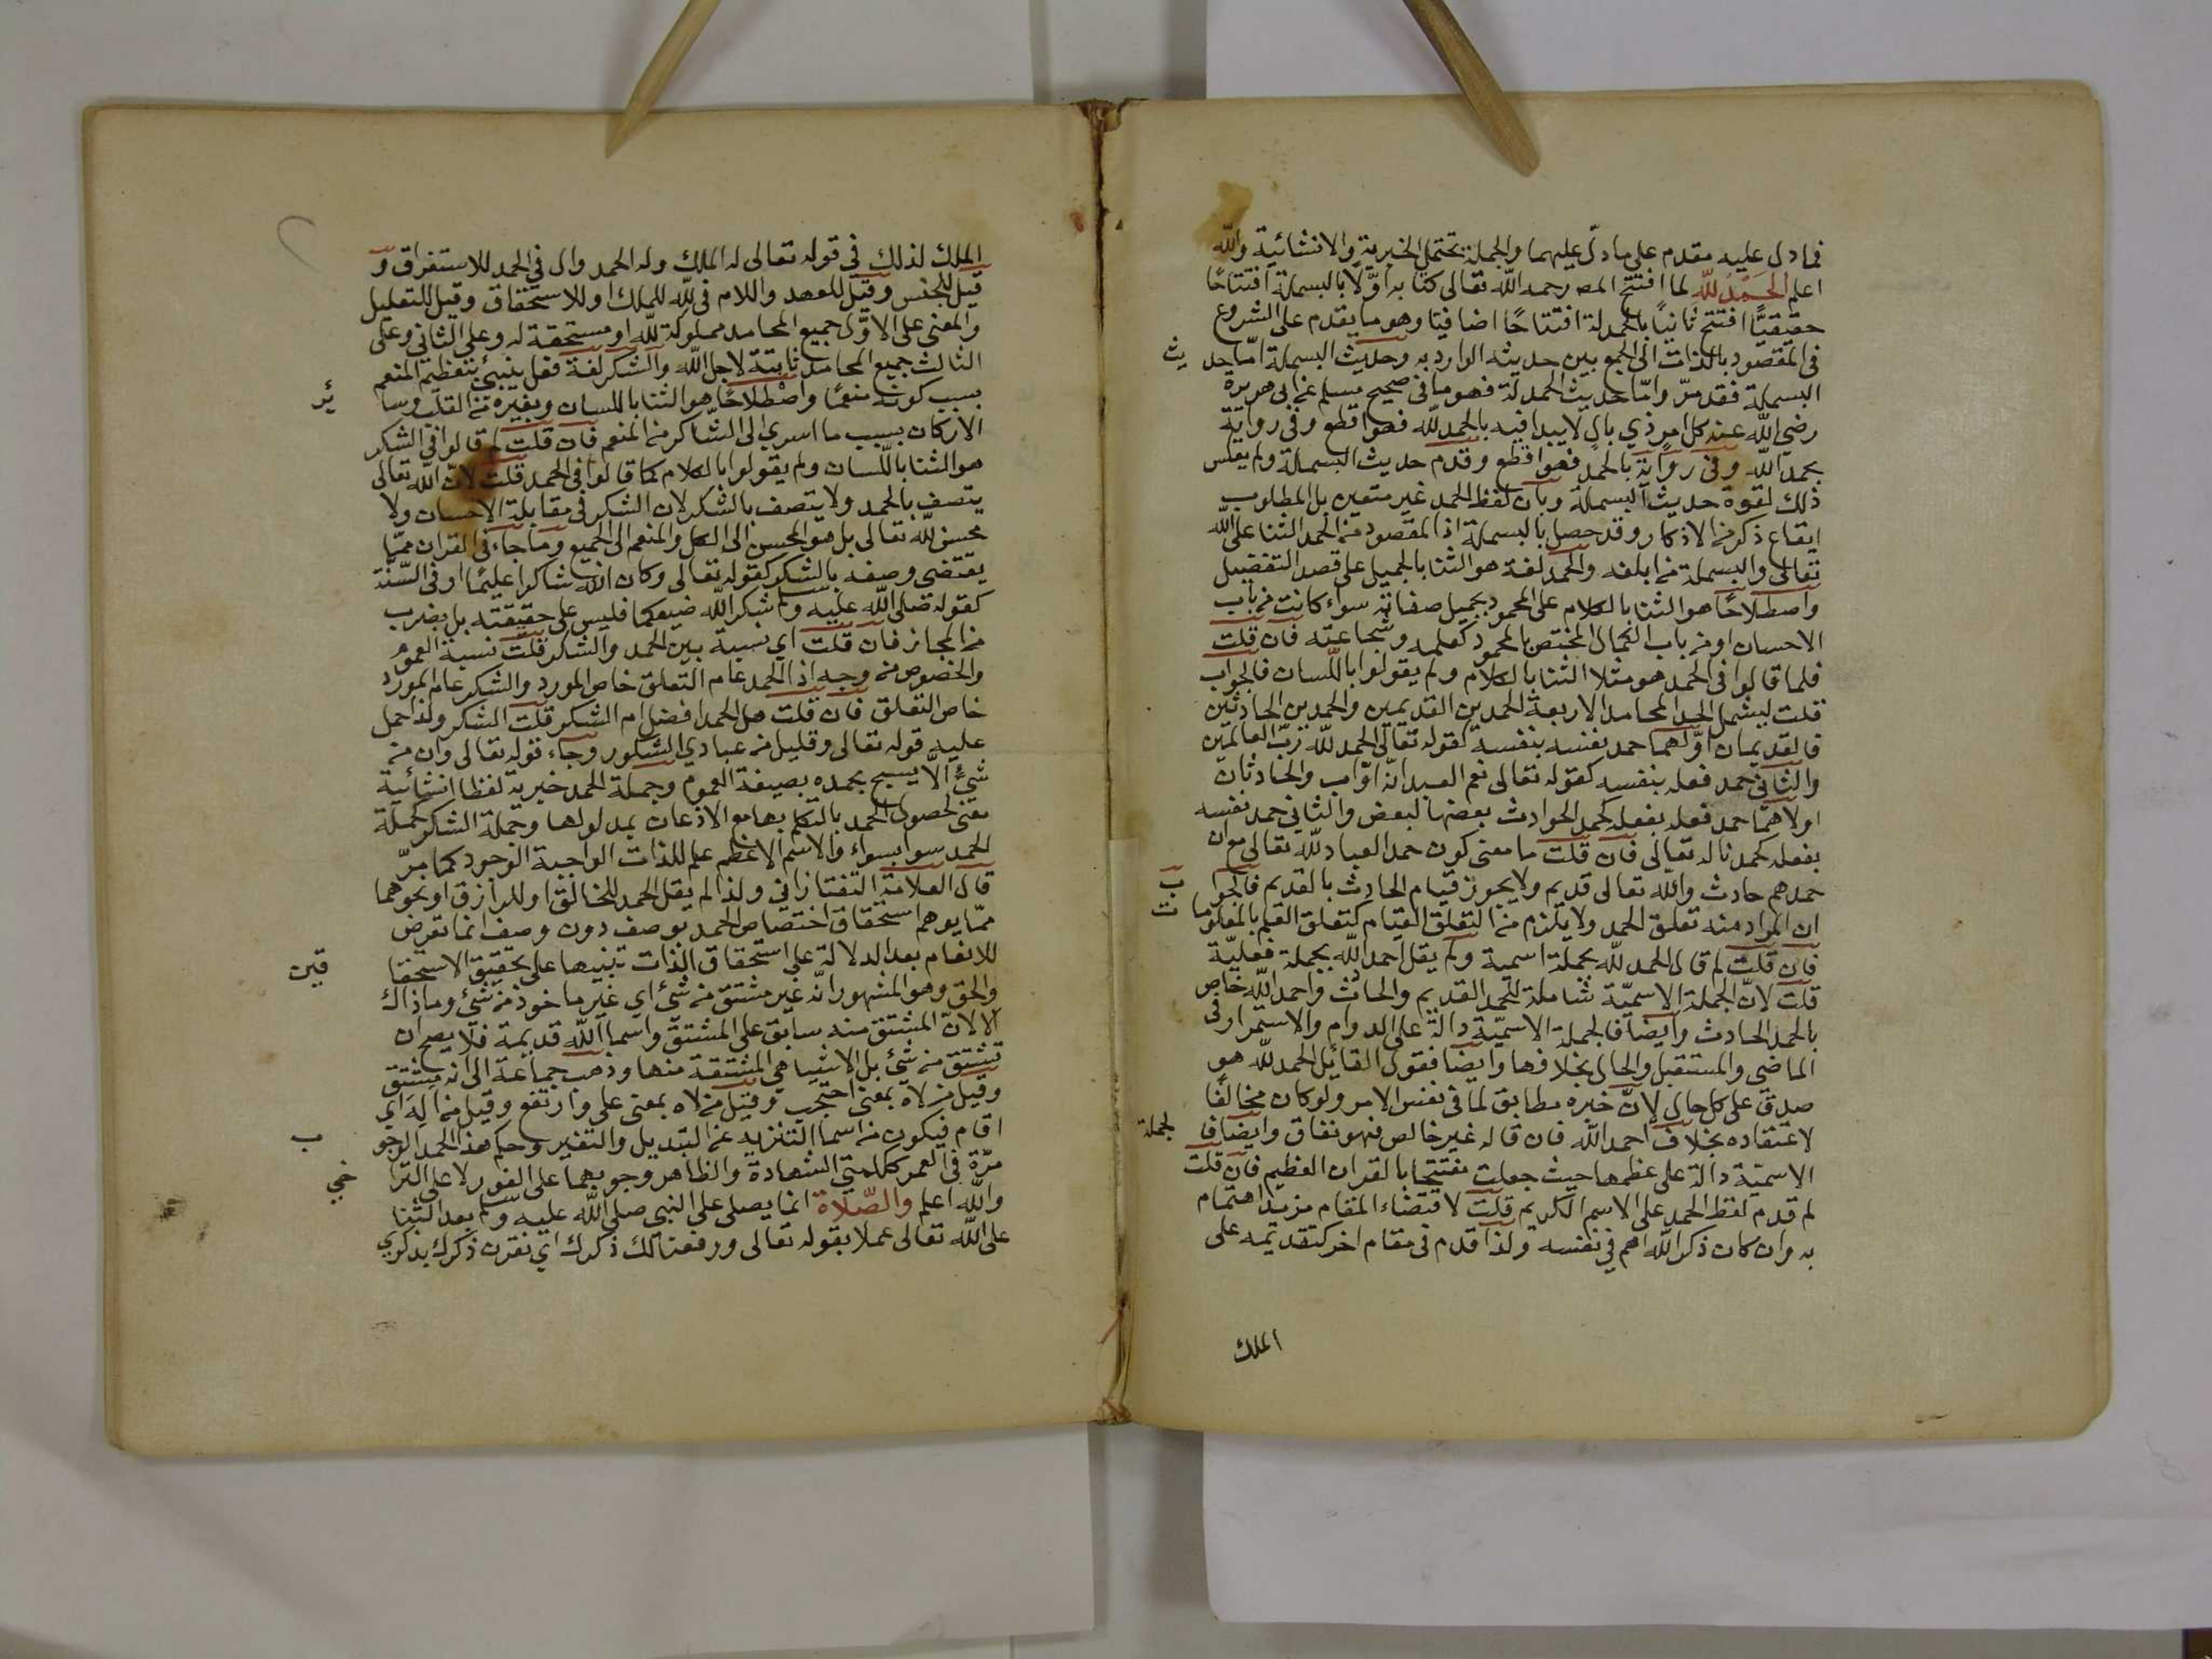 فما دل عليه مقدم على ما دلّ عليهما والجملة تحتمل الخبرية والانشائية والله
اعلم الحَمْدُ لله لما افتتح المص رحمه الله تعالى كتابه اوّلا بالبسملة افتتاحًا
حقيقيًّا افتتح ثانيًا بالحمدلة افتتاحًا اضافيا وهو ما يقدم على الشروع
في المقصود بالذات الى الجمع بين حديثه الوارد به وحديث البسملة امّا حديث
البسملة فقد مرّ وامّا حديث الحمدلة فهو ما في صحيح مسلم عن ابى هريرة
رضى الله عنه كل امر ذي بال لا يبدا فيه بالحمد لله فهو اقطع وفى رواية
بحمد الله وفى رواية بالحمد فهو اقطع وقدم حديث البسملة ولم يعكس
ذلك لقوة حديث البسملة وبان لفظ الحمد غير متعين بل المطلوب
ايقاع ذكر من الاذكار وقد حصل بالبسملة اذ المقصود من الحمد الثنا على الله
تعالى والبسملة من ابلغه والحمد لغة هو الثنا بالجميل على قصد التفضيل
واصطلاحًا هو الثنا بالكلام على المحمود بجميل صفاته سواء كانت من باب
الاحسان او من باب الكمال المختص بالمحمود كعلمه وشجاعته فان قلت
فلما قالوا فى الحمد هو مثلا الثنا بالكلام ولم يقولوا باللسان فالجواب
قلت ليشمل الحد المحامد الاربعة الحمدين القديمين والحمدين الحادثين
فالقديمان اوّلهما حمد نفسه بنفسه كقوله تعالى الحمد لله رب العالمين
والثانى حمد فعله بنفسه كقوله تعالى نعم العبد انّه اوّاب والحادثان
اولاهما حمد فعله بفعله كحمد الحوادث بعضها لبعض والثانى حمد نفسه
بفعله كحمدنا له تعالى فان قلت ما معنى كون حمد العباد لله تعالى مع ان
حمدهم حادث والله تعالى قديم ولا يجوز قيام الحادث بالقديم فالجواب
ان المراد منه تعلق الحمد ولا يلزم من التعلق القيام كتعلق العلم بالمعلومات
فان قلت لم قال الحمد لله بجملة اسمية ولم يقل احمد الله بجملة فعليّة
قلت لانّ الجملة الاسميّة شاملة للحمد القديم والحادث واحمد الله خاص
بالحمد الحادث وايضا فالجملة الاسميّة دالة على الدوام والاستمرار فى
الماضى والمستقبل والحال بخلافها وايضا فقول القائل الحمد لله هو
صدق على كل حال لانّ خبره مطابق لما فى نفس الامر ولو كان مخالفا
لاعتقاده بخلاف احمد الله فان قاله غير خالص فهو نفاق وايضا فالجملة
الاسميّة دالة على عظمها حيث جعلت مفتتحا بالقران العظيم فان قلت
لم قدم لفظ الحمد على الاسم الكريم قلت لاقتضاء المقام مزيد اهتمام
به وان كان ذكر الله اهم في نفسه ولذا قدم فى مقام اخر كتقديمه على
الملك
الملك لذلك في قوله تعالى له الملك وله الحمد وال في الحمد للاستغراق و
قيل للجنس وقيل للعهد واللام فى لله للملك او للاستحقاق وقيل للتعليل
والمعنى على الاوّل جميع المحامد مملوكة لله او مستحقة له وعلى الثانى وعلى
الثالث جميع المحامد ثابتة لاجل الله والشكر لغة فعل ينبئ بتعظيم المنعم
بسبب كونه منعمًا واصطلاحًا هو الثنا باللسان وبغيره من القلب وسائر
الاركان بسبب ما اسدي الى الشاكر من المنعم فان قلت لم قالوا في الشكر
هو الثنا باللسان ولم يقولوا بالكلام كما قالوا فى الحمد قلت لانّ الله تعالى
يتصف بالحمد ولا يتصف بالشكر لان الشكر فى مقابلة الاحسان ولا
محسن لله تعالى بل هو المحسن الى الكل والمنعم الى الجميع وما جاء فى القران ممّا
يقتضي وصفه بالشكر كقوله تعالى وكان الله شاكرا عليمًا او فى السّنّة
كقوله صلى الله عليه وسلم شكر الله ضيعكما فليس على حقيقته بل بضرب
من المجاز فان قلت اي نسبة بين الحمد والشكر قلت نسبة العموم
والخصوص من وجه اذ الحمد عام التعلق خاص المورد والشكر عام المورد
خاص التعلق فان قلت هل الحمد افضل ام الشكر قلت الشكر ولذا حمل
عليه قوله تعالى وقليل من عبادي الشكور وجاء قوله تعالى وان من
شئ الّا يسبح بحمده بصيغة العموم وجملة الحمد خبرية لفظا انشائية
معنى لحصول الحمد بالتكلم بها مع الاذعان بمدلولها وجملة الشكر كجملة
الحمد سوا بسواء والاسم الاعظم علم للذات الواجبة الوجود كما مرّ
قال العلامة التفتازاني ولذا لم يقل الحمد للخالق او للرازق او نحوهما
ممّا يوهم استحقاق اختصاص الحمد بوصف دون وصف انما تعرض
للانعام بعد الدلالة على استحقاق الذات تنبيها على تحقيق الاستحقاقين
والحق وهو المشهور انّه غير مشتق من شئ اي غير ماخوذ من شئ وما ذاك
الا لانّ المشتق منه سابق على المشتق واسما الله قديمة فلا يصح ان
تشتق من شئ بل الاشيا هي المشتقة منها وذهب جماعة الى انه مشتق
وقيل من لاه بمعنى احتجب وقيل من لاه بمعنى على وارتفع وقيل من اله اي
اقام فيكون من اسما التنزيه عن التبديل والتغير وحكم هذا الحمد الوجوب
مرّة فى العمر ككلمتي الشهادة والظاهر وجوبهما على الفور لا على التراخي
والله اعلم والصّلاة انما يصلى على النبي صلى الله عليه وسلم بعد الثنا
على الله تعالى عملا بقوله تعالى ورفعنا لك ذكرك اي نقرن ذكرك بذكري